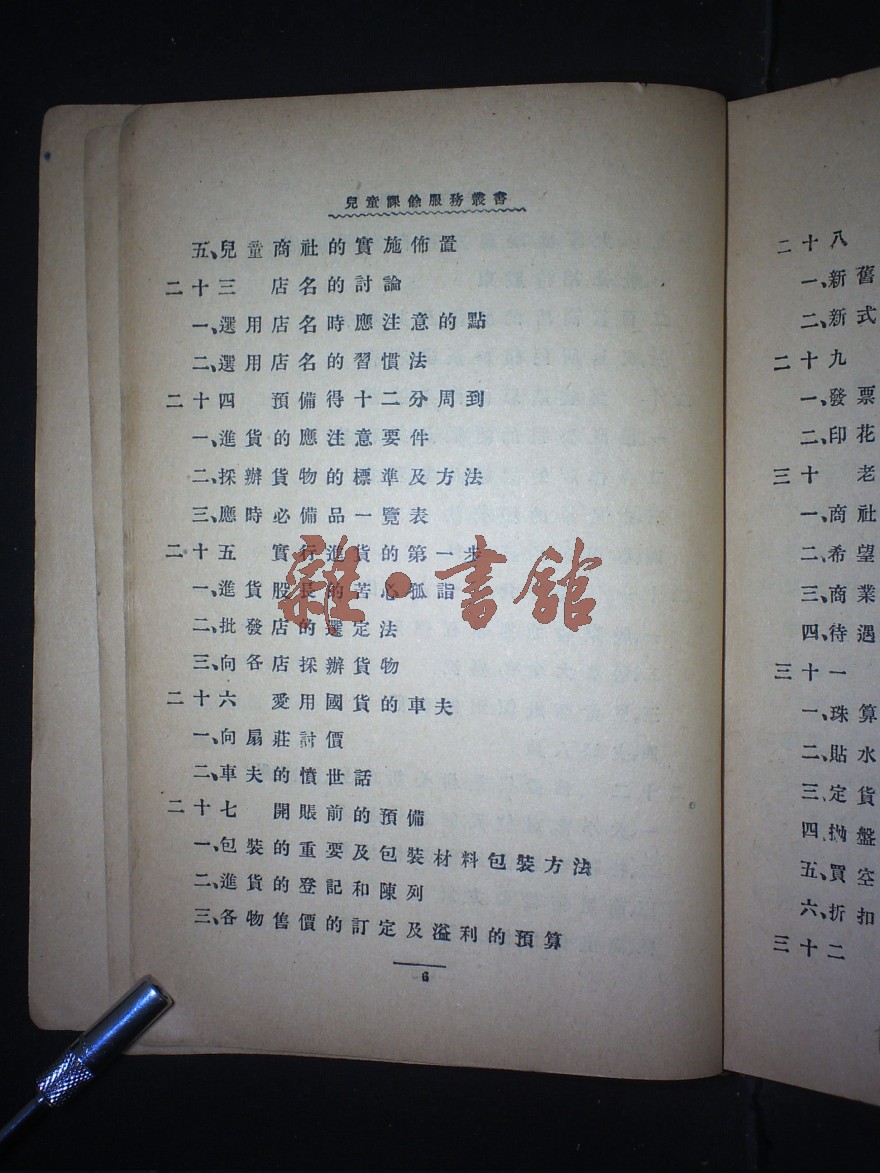 兒童課餘服務叢書
五、兒童商社的實施佈置
二十三 店名的討論
一、選用店名時應注意的點
二、選用店名的習慣法
二十四 預備得十二分周到
一、進貨的應注意要件
二、採辦貨物的標準及方法
三、應時必備品一覽表
二十五 實行進貨的第一步
一、進貨股長的苦心孤詣
二、批發店的選定法
三、向各店採辦貨物
二十六 愛用國貨的車夫
一、向扇莊討價
二、車夫的憤世話
二十七 開賬前的預備
一、包裝的重要及包裝材料包裝方法
二、進貨的登記和陳列
三、各物售價的訂定及溢利的預算
6
雜·書館
二十八
一、新舊
二、新式
二十九
一、發票
二、印花
三十 老
一、商社
二、希望
三、商業
四、待遇
三十一
一、珠算
二、貼水
三、定貨
四、拋盤
五、買空
六、折扣
三十二